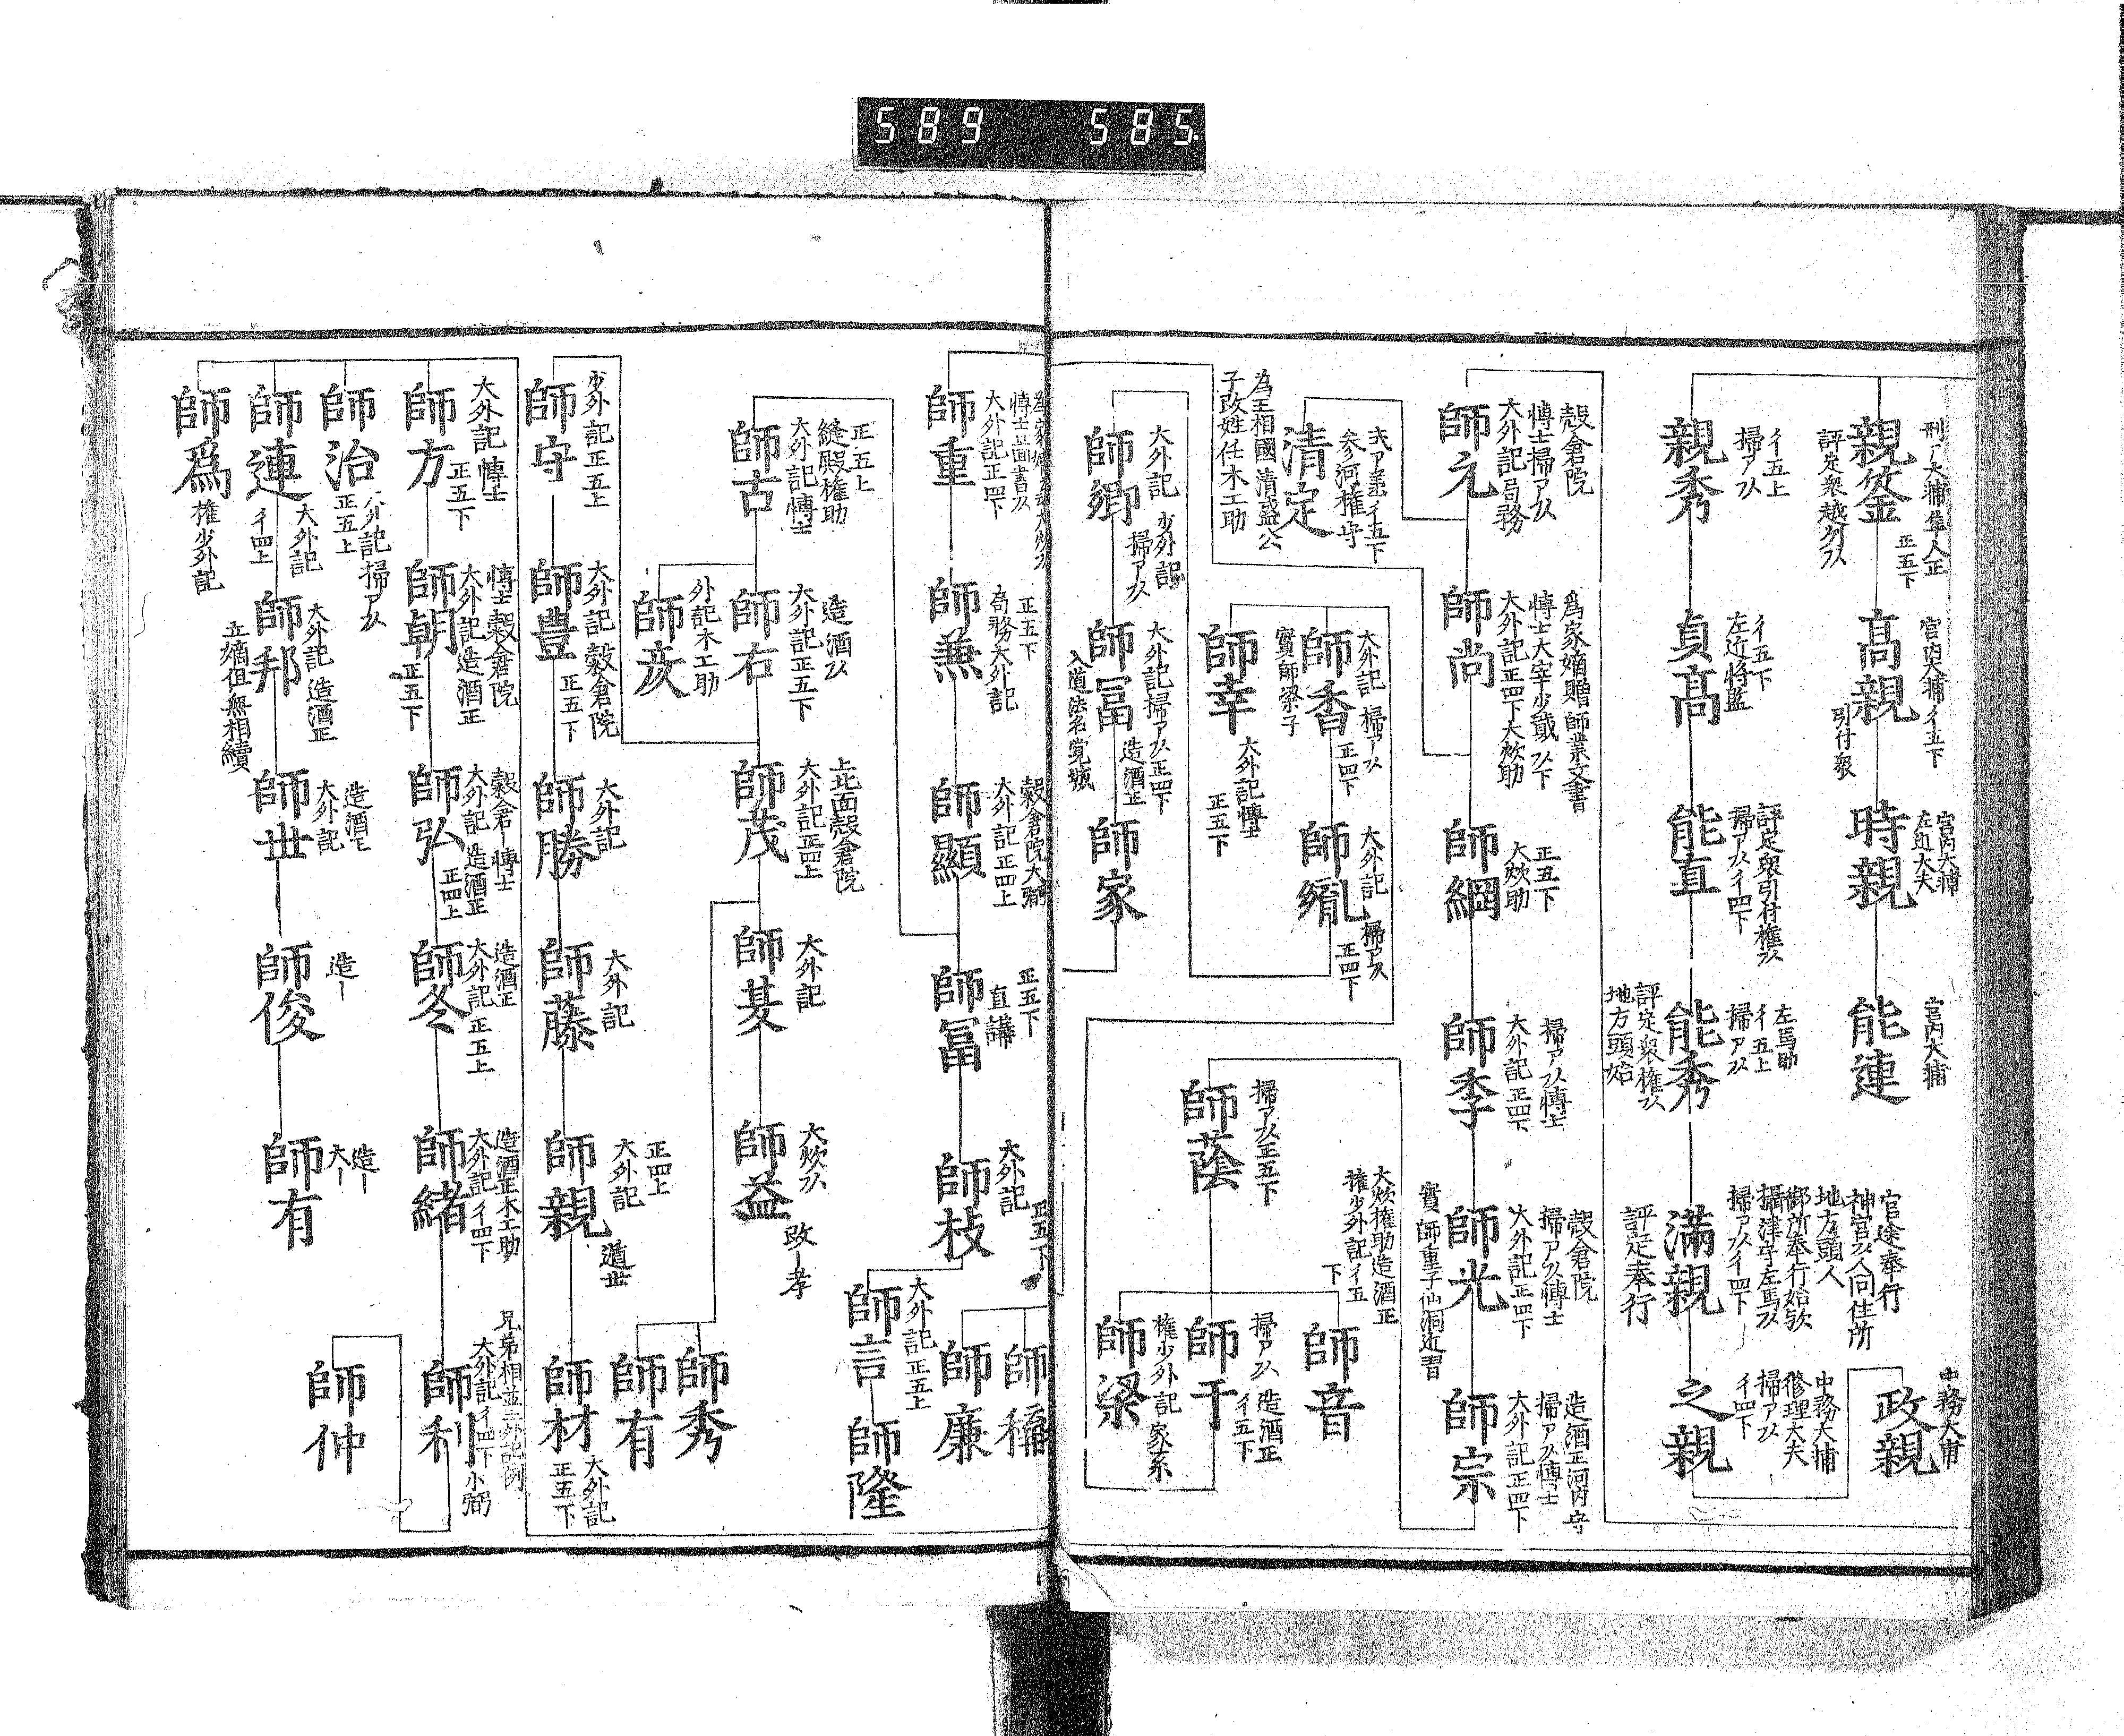 589 585
刑ア大輔隼人正
親鉴
正五下
評定衆越外以
宮内大輔イ五下
高親
引付衆
宮内大輔
左近大夫
時親
宮内大輔
能連
中務大甫
政親
イ五上
掃ア以
親秀
イ五下
左近将監
貞高
評定衆引付権以
掃ア以イ四下
能直
左馬助
イ五上
掃ア以
能秀
評定衆権以
地方頭始
官途奉行
神宮以人同住所
地方頭人
御所奉行始歟
攝津守左馬以
掃ア以イ四下
満親
評定奉行
中務大輔
修理大夫
掃ア以
イ四下
之親
殻倉院
博士掃ア以
大外記局務
師元
為家嫡贈師業文書
博士大宰少貳以下
大外記正四下大炊助
師尚
正五下
大炊助
師綱
掃ア以博士
大外記正四下
師季
殻倉院
掃ア以博士
大外記正四下
師光
實師重子仙洞近習
造酒正河内守
掃ア以博士
大外記正四下
師宗
参河権守
清定
為王相國清盛公
子改姓任木工助
大外記掃ア以
正四下
師香
實師梁子
大外記
掃ア以
正四下
師胤
師幸
大外記博士
正五下
掃ア以正五下
師蔭
大炊権助造酒正
権少外記イ五
下
師音
掃ア以造酒正
イ五下
師于
権少外記家系
師梁
大外記少外記
掃ア以
師郷
大外記掃ア以正四下
造酒正
師冨
師家
大外記正四下
師重
正五下
局務大外記
師兼
穀倉院大弼
大外記正四上
師顯
正五下
直講
師冨
大外記
正五下
師枝
師廉
大外記正五上
師言
師隆
正五上
縫殿権助
大外記博士
師古
造酒以
大外記正五下
師右
外記木工助
師彦
上北面殻倉院
大外記正四上
師茂
大外記
師夏
大炊以
師益
改ー孝
師秀
師有
少外記正五上
師守
大外記穀倉院
正五下
師豊
大外記
師勝
大外記
師藤
正四上
大外記
師親
遁世
師材
大外記
正五下
大外記博士
正五下
師方
博士穀倉院
大外記造酒正
師朝
正五下
穀倉ー博士
大外記造酒正
師弘
正四上
造酒正
大外記正五上
師冬
造酒正木工助
大外記イ四下
師緒
兄弟相並ニ外記例
大外記イ四下小弼
師利
師仲
師治
大外記掃ア以
正五上
師連
大外記
イ四上
大外記造酒正
師邦
五嫡但無相續
造酒正
大外記
師世
造ー
師俊
造ー
大ー
師有
師為
権少外記